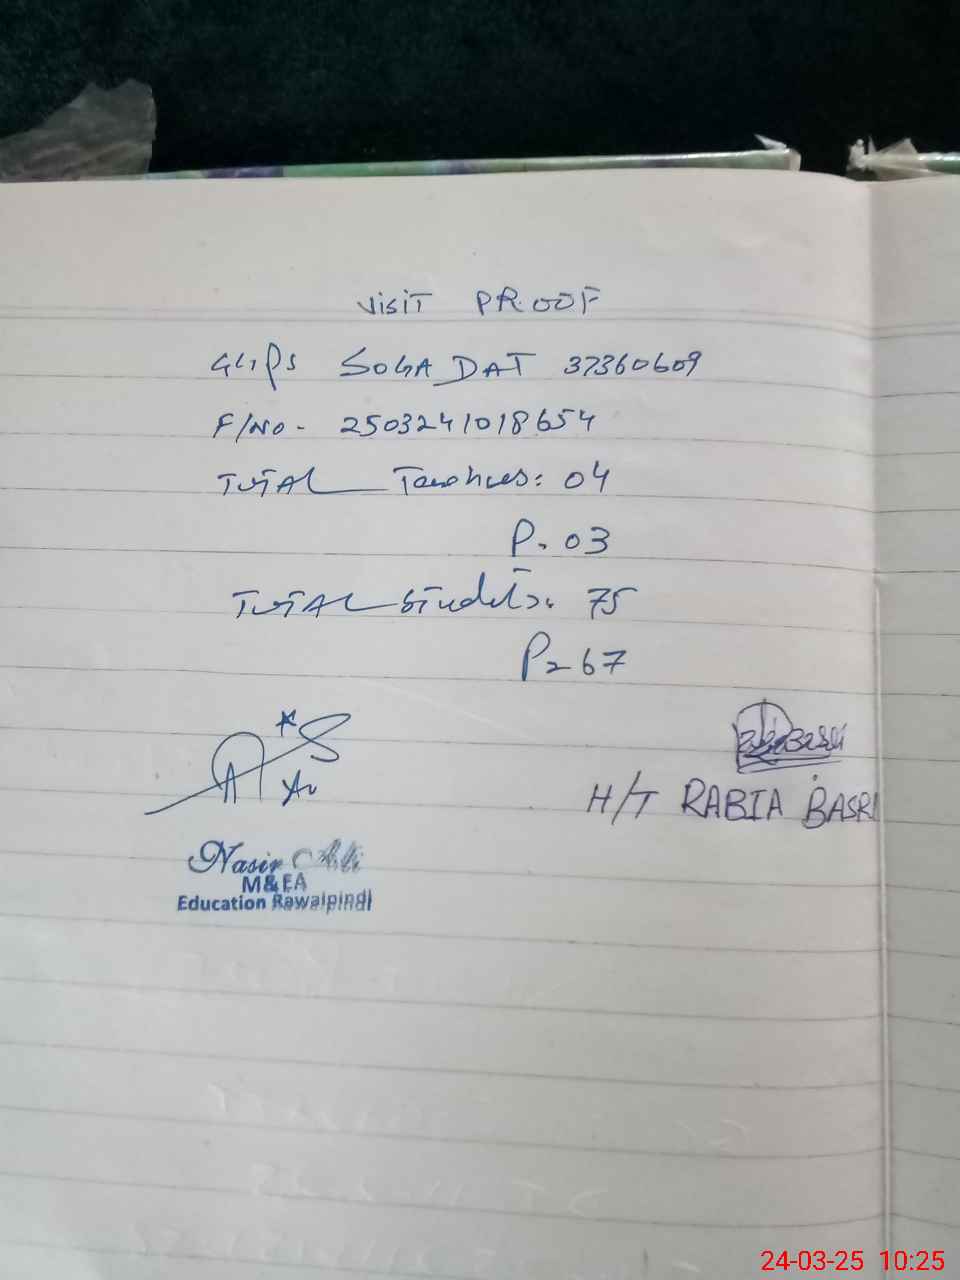 VISIT PROOF
GGPS SOGA DAT 37360609
F/NO- 2503241018654
TOTAL Teachers: 04
P. 03
TOTAL Students. 75
P= 67
H/T RABIA BASRI
Nasir Ali
M&EA
Education Rawalpindi
24-03-25 10:25